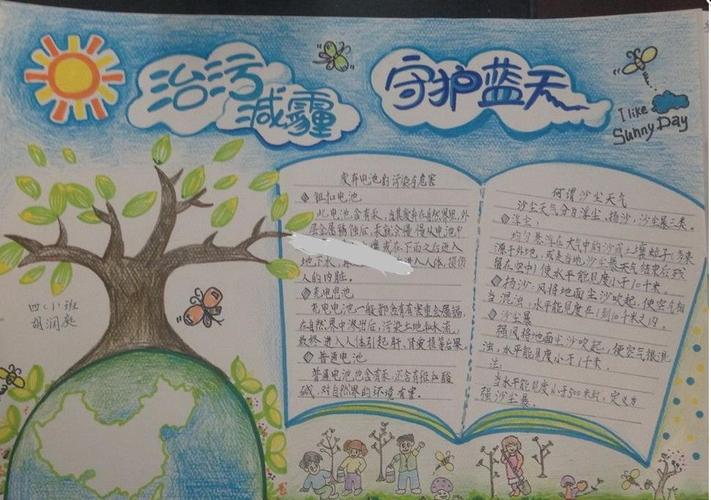 治污
减霾
守护蓝天
I like
Sunny Day
四(小)班
胡润庭
废弃电池的污染与危害
钮扣电池
地下水
进入人体,损伤
人的内脏。
充电电池
充电电池一般都含有有害重金属镉,
在自然界中渗出后,污染土地和水道,
最终进入人体引起肝、肾衰损等后果。
普通电池
普通电池也含有汞,还含有
碱,对自然界的环境有害。
何谓沙尘天气
沙尘天气分为浮尘、扬沙、沙尘暴三类。
浮尘:
均匀悬浮在大气中的沙或土壤粒子(多来
源于外地,或是当地沙尘暴天气结束后残
留在空中)使水平能见度小于10千米
扬沙:风将地面尘沙吹起,使空气相
当混浊,水平能见度在1到10千米之内。
沙尘暴
强风将地面尘沙吹起,使空气很混
浊,水平能见度小于1千米。
当水平能见度小于500米时,定义为
强沙尘暴。